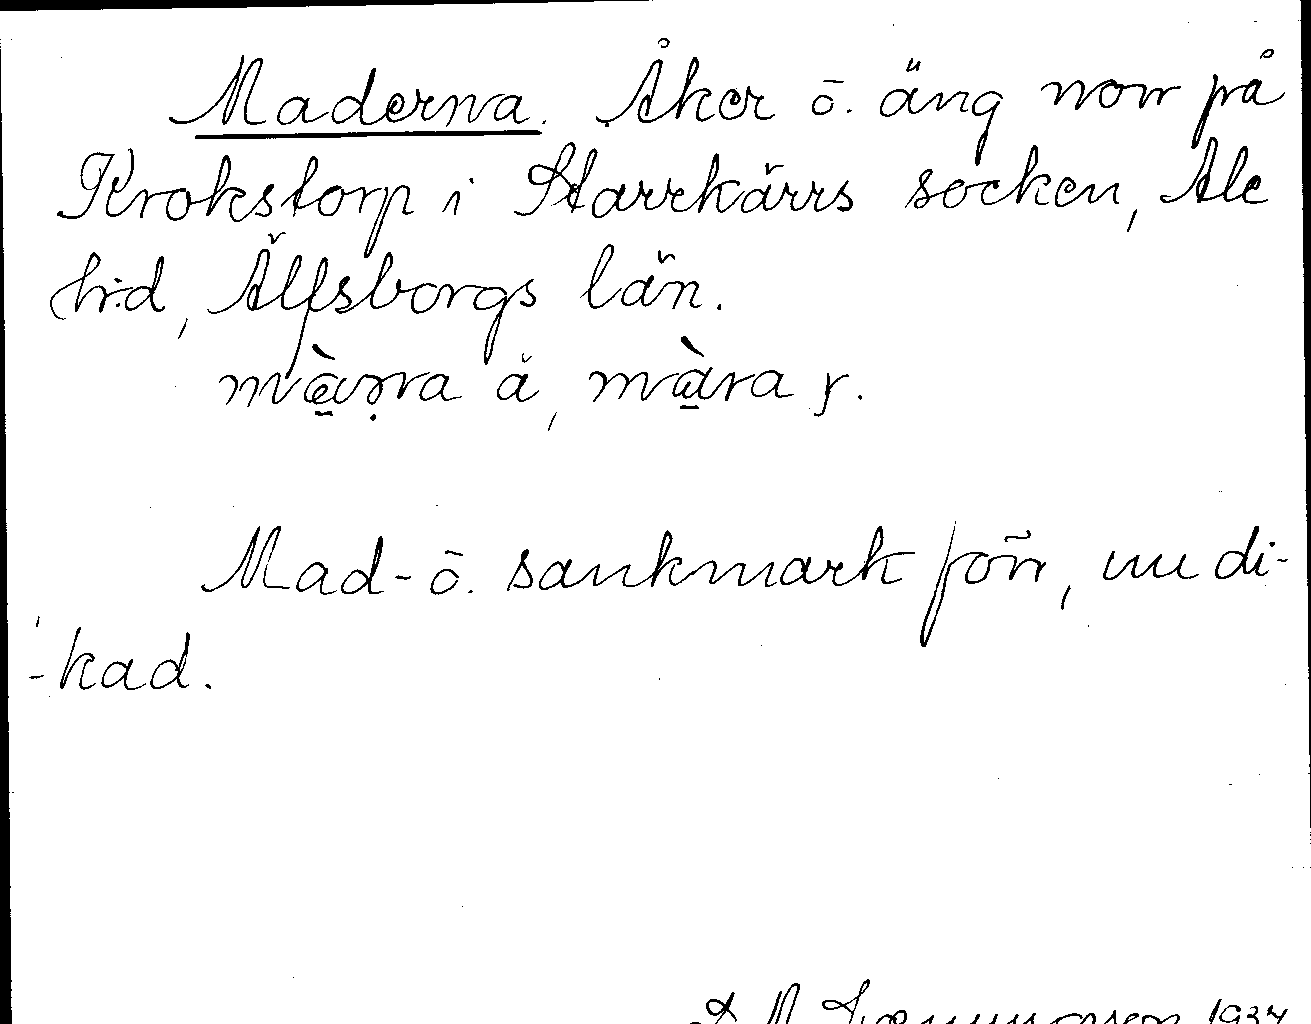 Maderna. Åker ō. äng norr på
Krokstorp i Starrkärrs socken, Ale
h:d, Älfsborgs län.
mὰṇra å, mὰra y.
Mad- ō. sankmark förr, nu di-
-kad.
1934